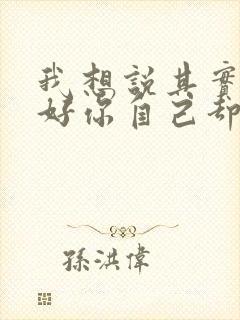 我想說其實
好你自己却
孫洪偉